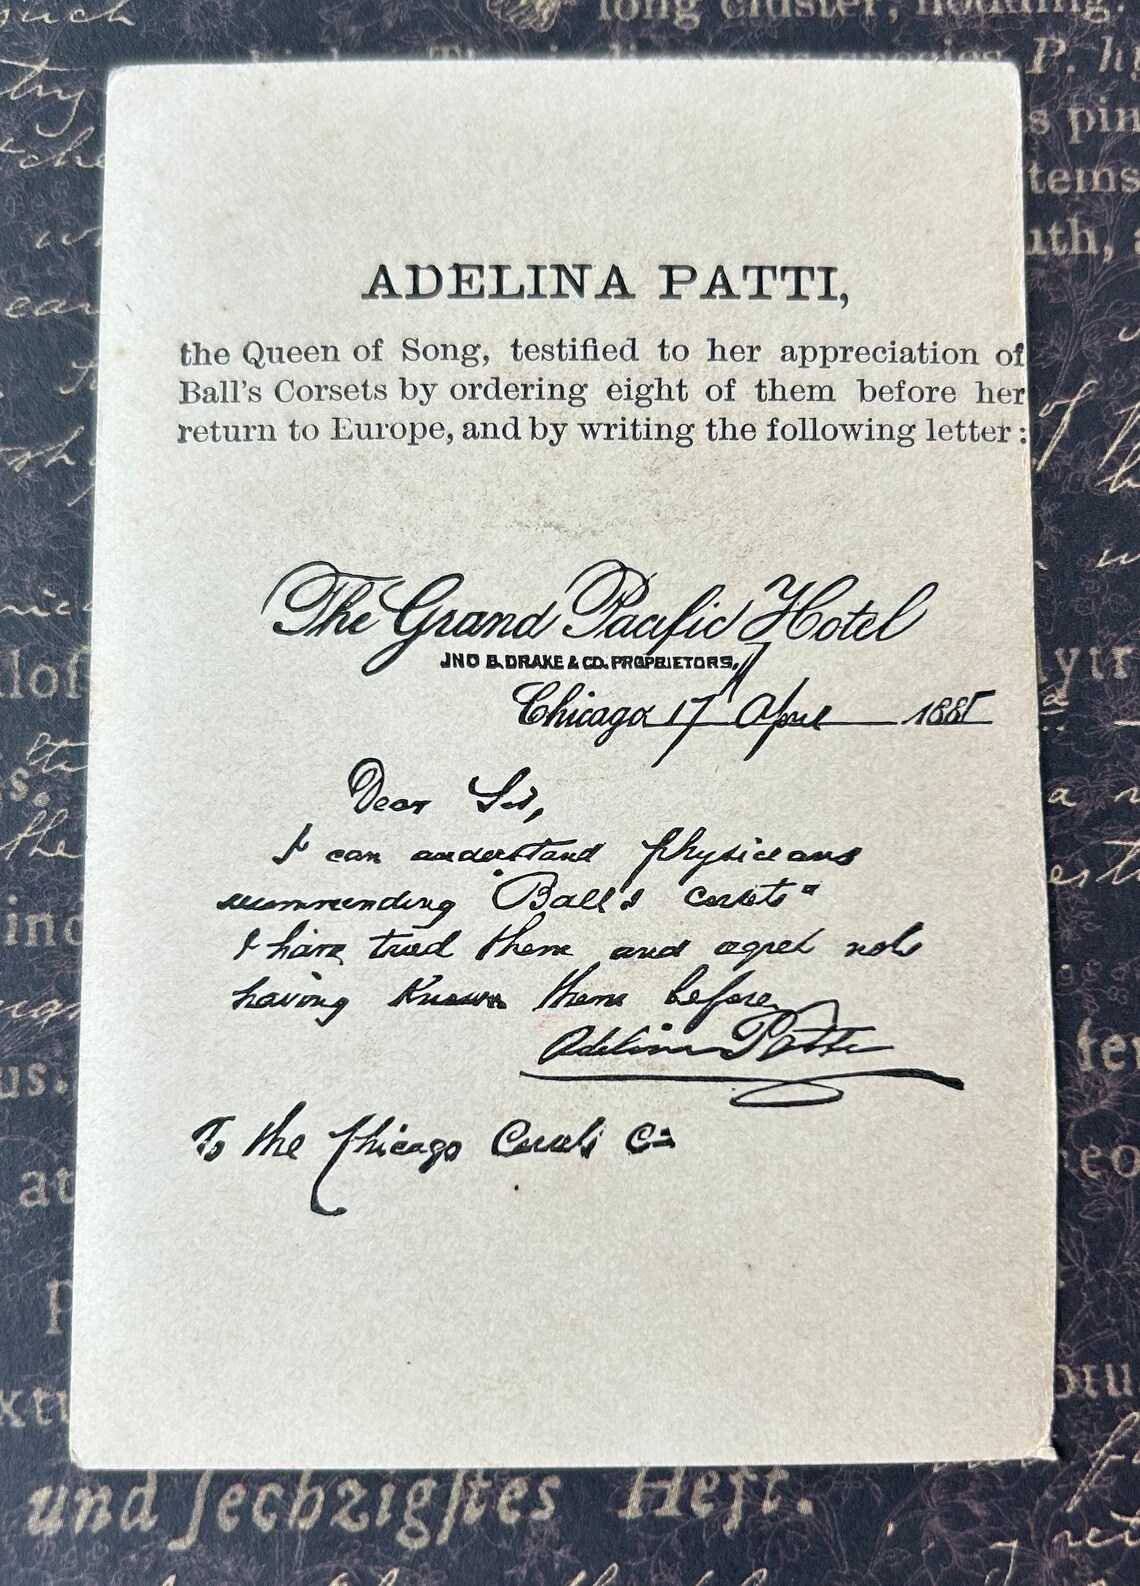 ADELINA PATTI,
the Queen of Song, testified to her appreciation of
Ball's Corsets by ordering eight of them before her
return to Europe, and by writing the following letter:
The Grand Pacific Hotel
JNO B. DRAKE & CO. PROPRIETORS.
Chicago 17 April 1885
Dear Sir,
I can understand physicians
recommending "Ball's corsets"
I have tried them and regret not
having known them before
Adelina Patti
To the Chicago Corsets Co
long cluster, nodding.
such
P.
s pin
tems
uth,
und sechzigstes Heft.
the
us.